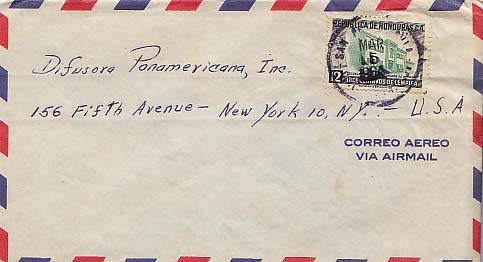 REPUBLICA DE HONDURAS, C.A.
SAN
MAR
5
12
DOCE CENTAVOS DE LEMPIRA
Difusora Panamericana, Inc.
156 Fifth Avenue - New York 10, N.Y. - U.S.A
CORREO AEREO
VIA AIRMAIL